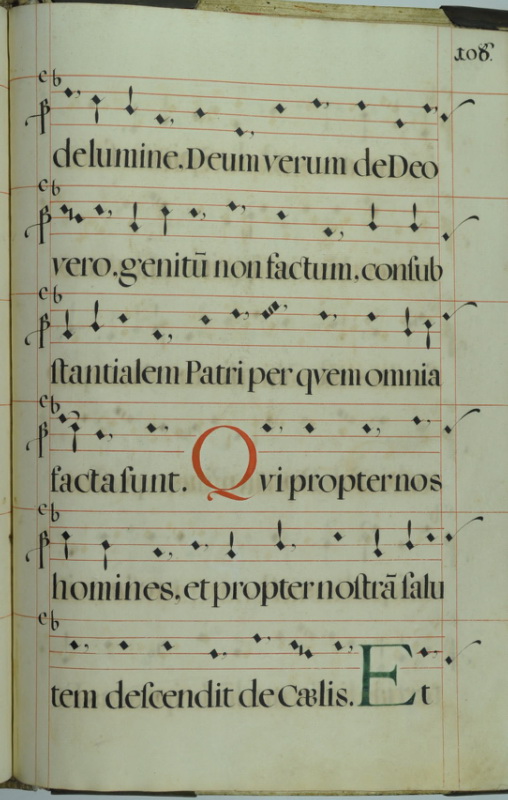 108.
de lumine. Deum verum de Deo
vero. genitū non factum, conſub
ſtantialem Patri per qvem omnia
facta ſunt. Qvi propter nos
homines, et propter noſtrā ſalu
tem deſcendit de Cælis. Et